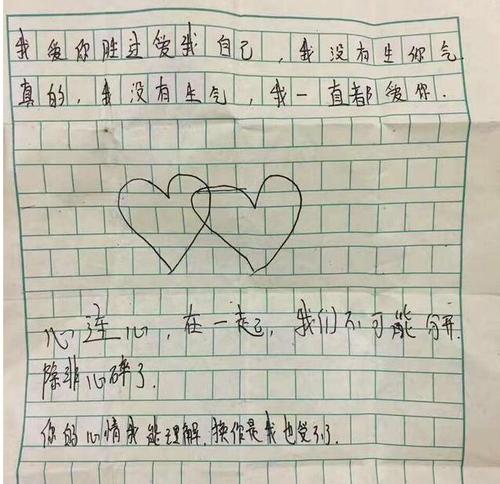 我爱你胜过爱我自己，我没有生你气
真的，我没有生气，我一直都爱你.
心连心，在一起，我们不可能分开.
除非心碎了.
你的心情我能理解.换作是我也受不了.